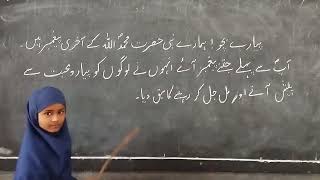 پیارے بچو! ہمارے نبی حضرت محمدؐ اللہ کے آخری پیغمبر ہیں۔
آپؐ سے پہلے جتنے پیغمبر آئے انہوں نے لوگوں کو پیار و محبت سے
پیش آنے اور مل جل کر رہنے کا سبق دیا۔